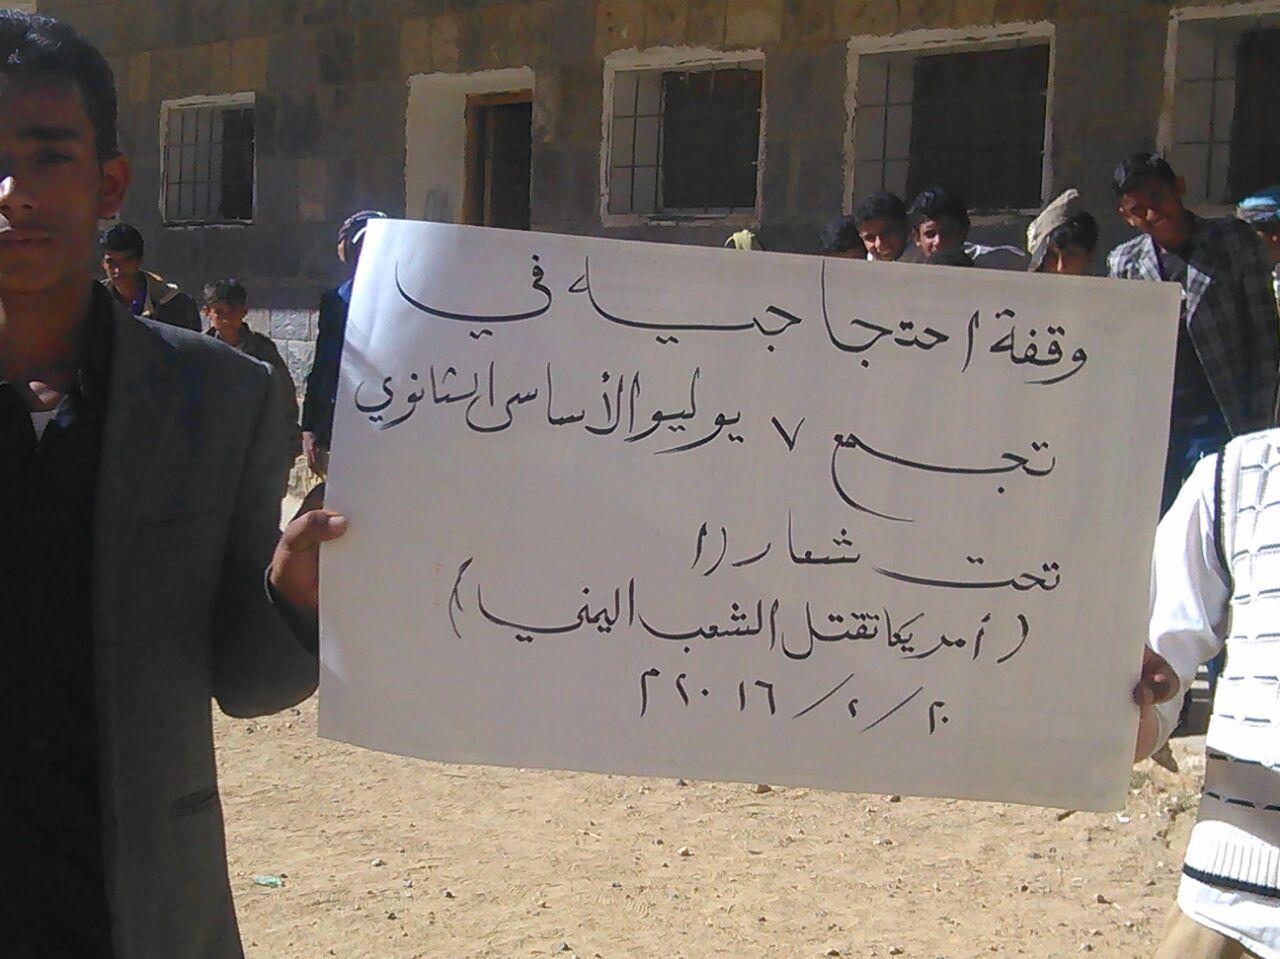 وقفة احتجاجيه في
تجمع ٧ يوليو الأساسي الثانوي
تحت شعار ((
(أمريكا تقتل الشعب اليمني)
٢٠/٢/٢٠١٦م